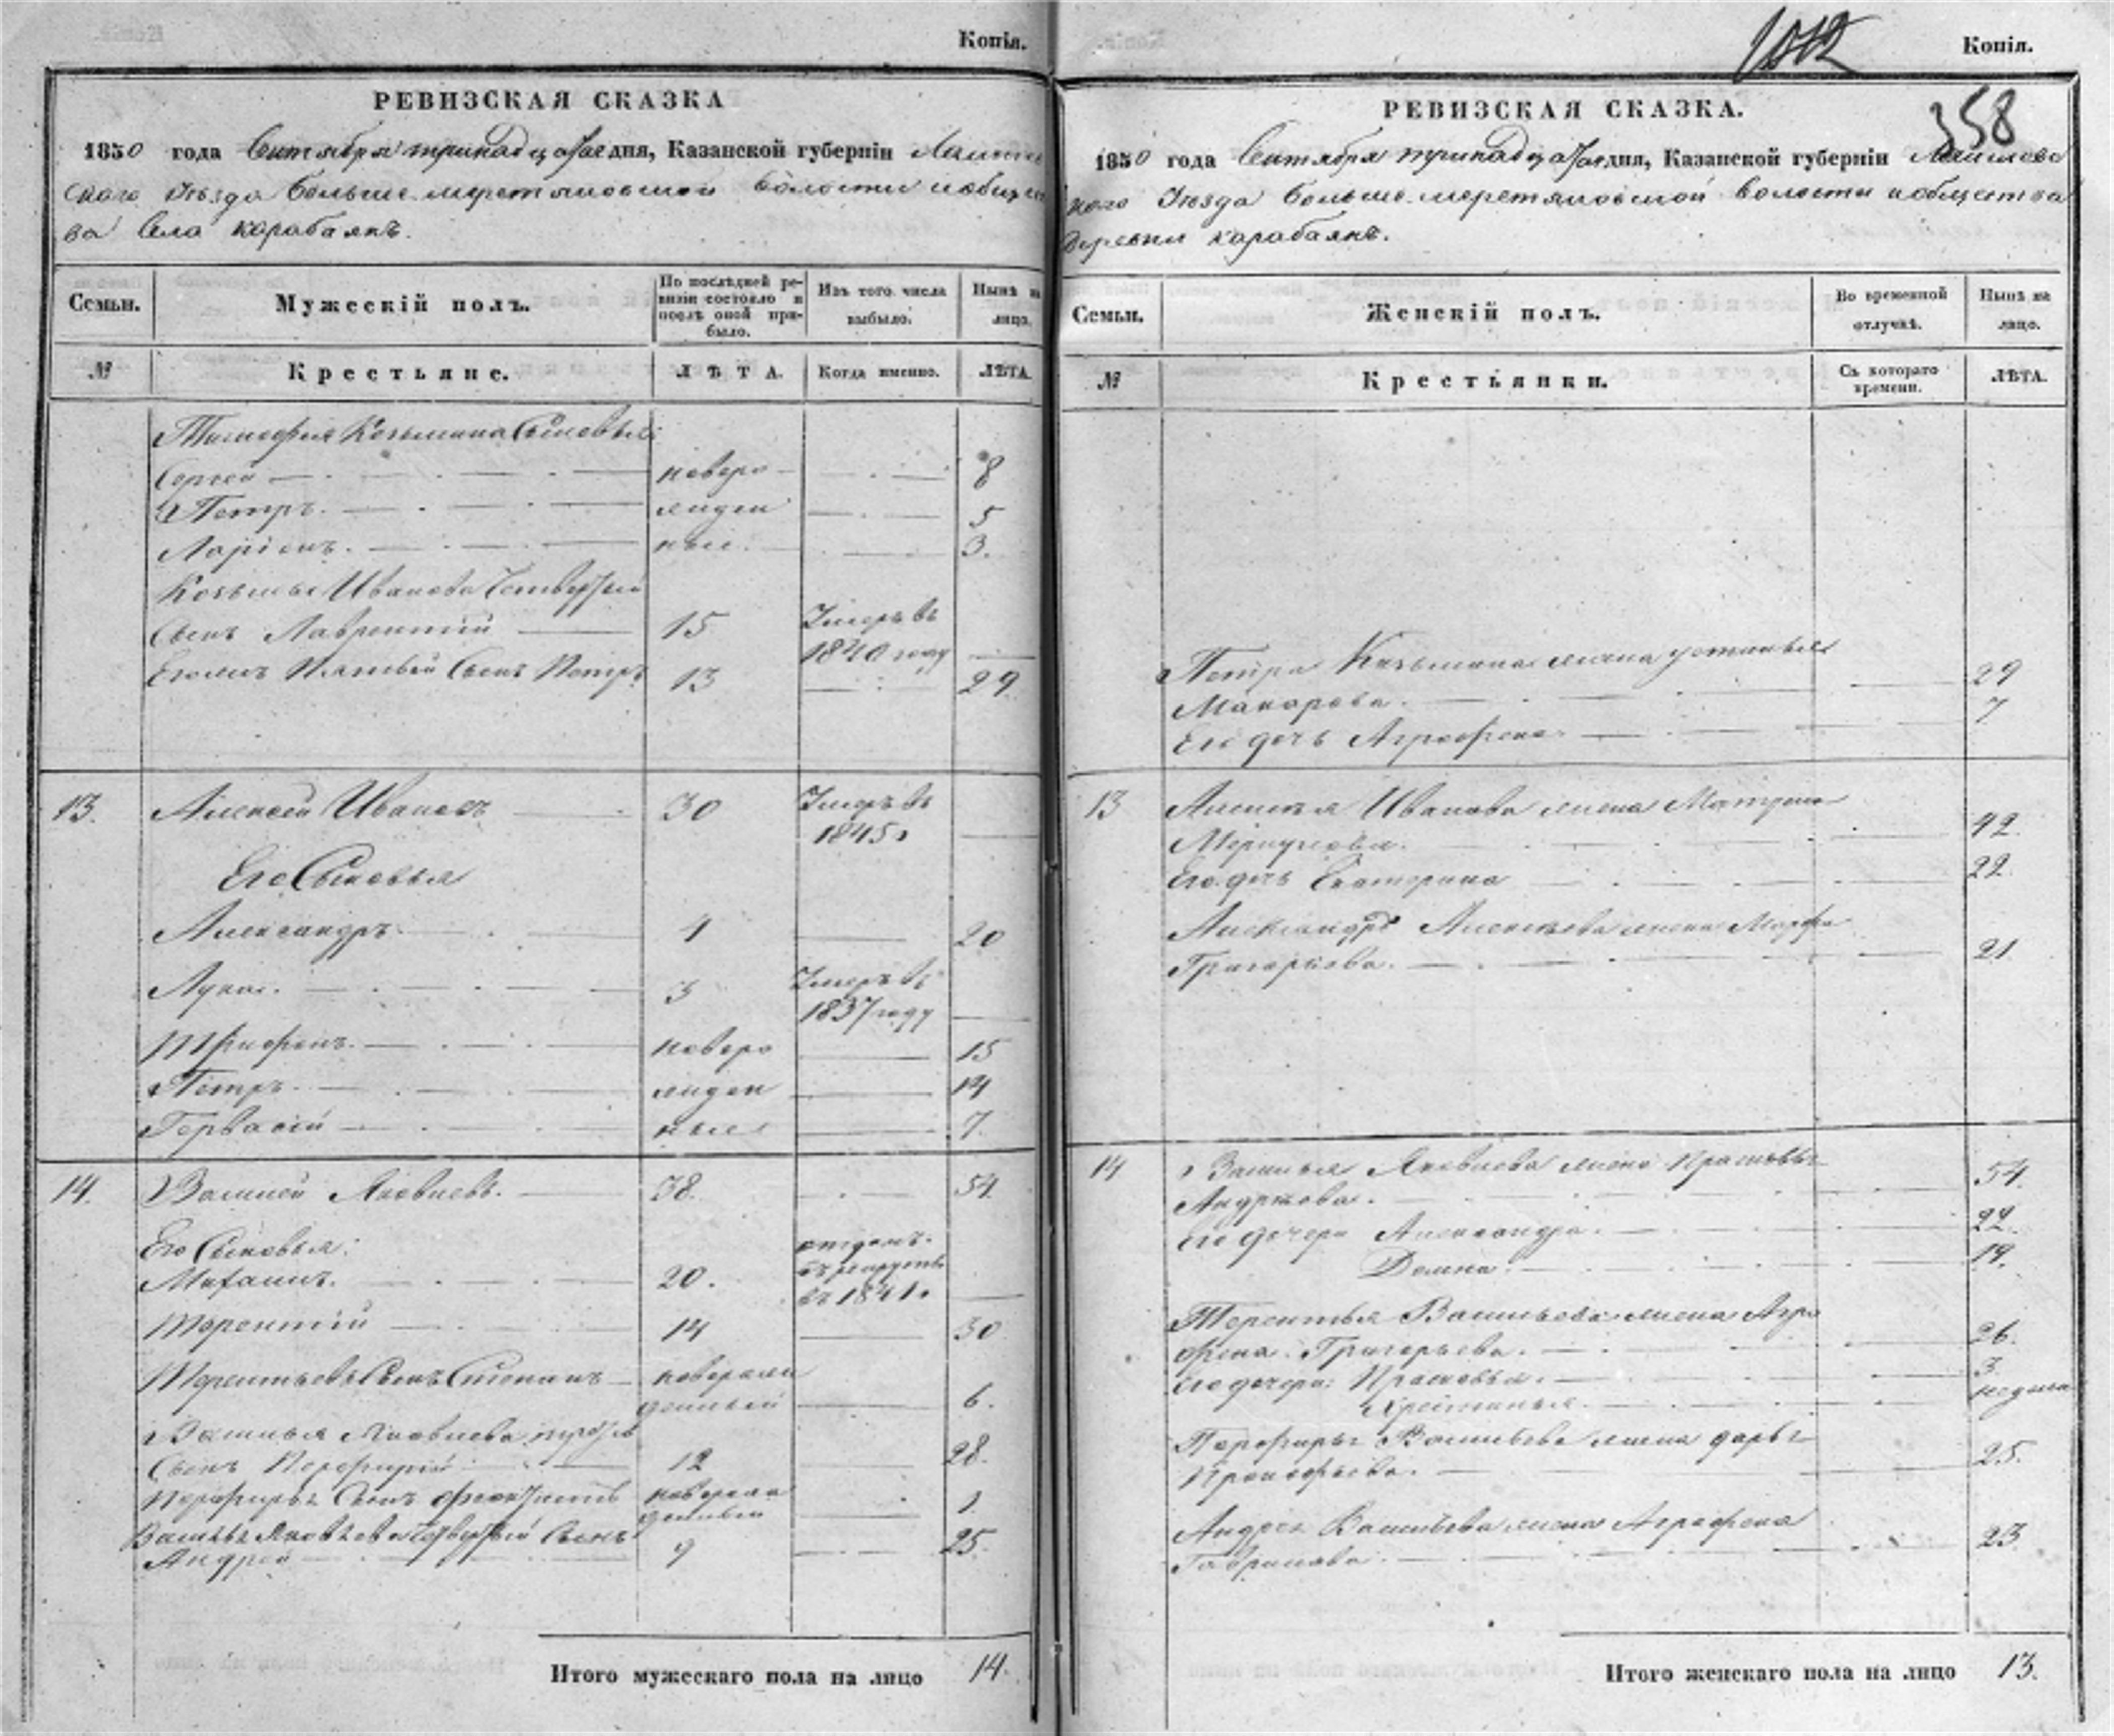 Копія.
РЕВИЗСКАЯ СКАЗКА
1850 года Сентября тринадцатаго дня, Казанской губерніи Лаишев
скаго Уѣзда Больше меретяковской волости и общест
ва Села Карабаянъ.
Семьи.
Мужескій полъ.
По послѣдней ре-
визіи состояло и
послѣ оной при-
было.
Изъ того числа
выбыло.
Нынѣ на
лицо.
№
Крестьяне.
ЛѢТА.
Когда именно.
ЛѢТА.
Тимофея Козьмина Сыновья:
Сергей новоро 8
Петръ жден 5
Ларіонъ ные 3.
Козьмы Иванова Четвертый
Сынъ Лаврентій 15 Умеръ въ
1840 году
Егожъ Пятый Сынъ Петръ 13 29.
13. Алексей Ивановъ 30 Умеръ въ
1845г
Его Сыновья
Александръ 4 20
Лука. 3 Умеръ въ
1837 году
Трифонъ новоро 15
Петръ жден 14
Гервасій ные 7.
14. Василей Яковлевъ. 38. 54
Его Сыновья: отданъ
Михаилъ. 20. въ рекруты
въ 1841г
Терентій 14 30
Терентьевъ Сынъ Степанъ новорож
денный 6.
Василья Яковлева третій
Сынъ Порфирій 12 28.
Порфирья Сынъ новорож
денный 1.
Василья Яковлева Четвертый Сынъ
Андрей 9 25.
Итого мужескаго пола на лицо 14.
1012
Копія.
358
РЕВИЗСКАЯ СКАЗКА.
1850 года Сентября тринадцатаго дня, Казанской губерніи Лаишевс
каго Уѣзда Больше меретяковской волости и общества
деревни Карабаянъ.
Семьи.
Женскій полъ.
Во временной
отлучкѣ.
Нынѣ на
лицо.
№
Крестьянки.
Съ котораго
времени.
ЛѢТА.
Петра Козьмина жена Устинья
Макарова. 29
Его дочь Аграфена 7
13 Алексѣя Иванова жена Матрена
Меркулова. 42.
Его дочь Екатерина 22.
Александра Алексѣева жена Марфа
Григорьева. 21
14 Василья Яковлева жена Прасковья
Андрѣева. 54.
Его дочери Александра. 22.
Домна. 19.
Терентья Васильева жена Агра
фена Григорьева. 26.
Его дочери: Прасковья. 3
недели
Порфирья Васильева жена Дарья
Прокофьева. 25.
Андрея Васильева жена Аграфена
Гаврилова. 23.
Итого женскаго пола на лицо 13.